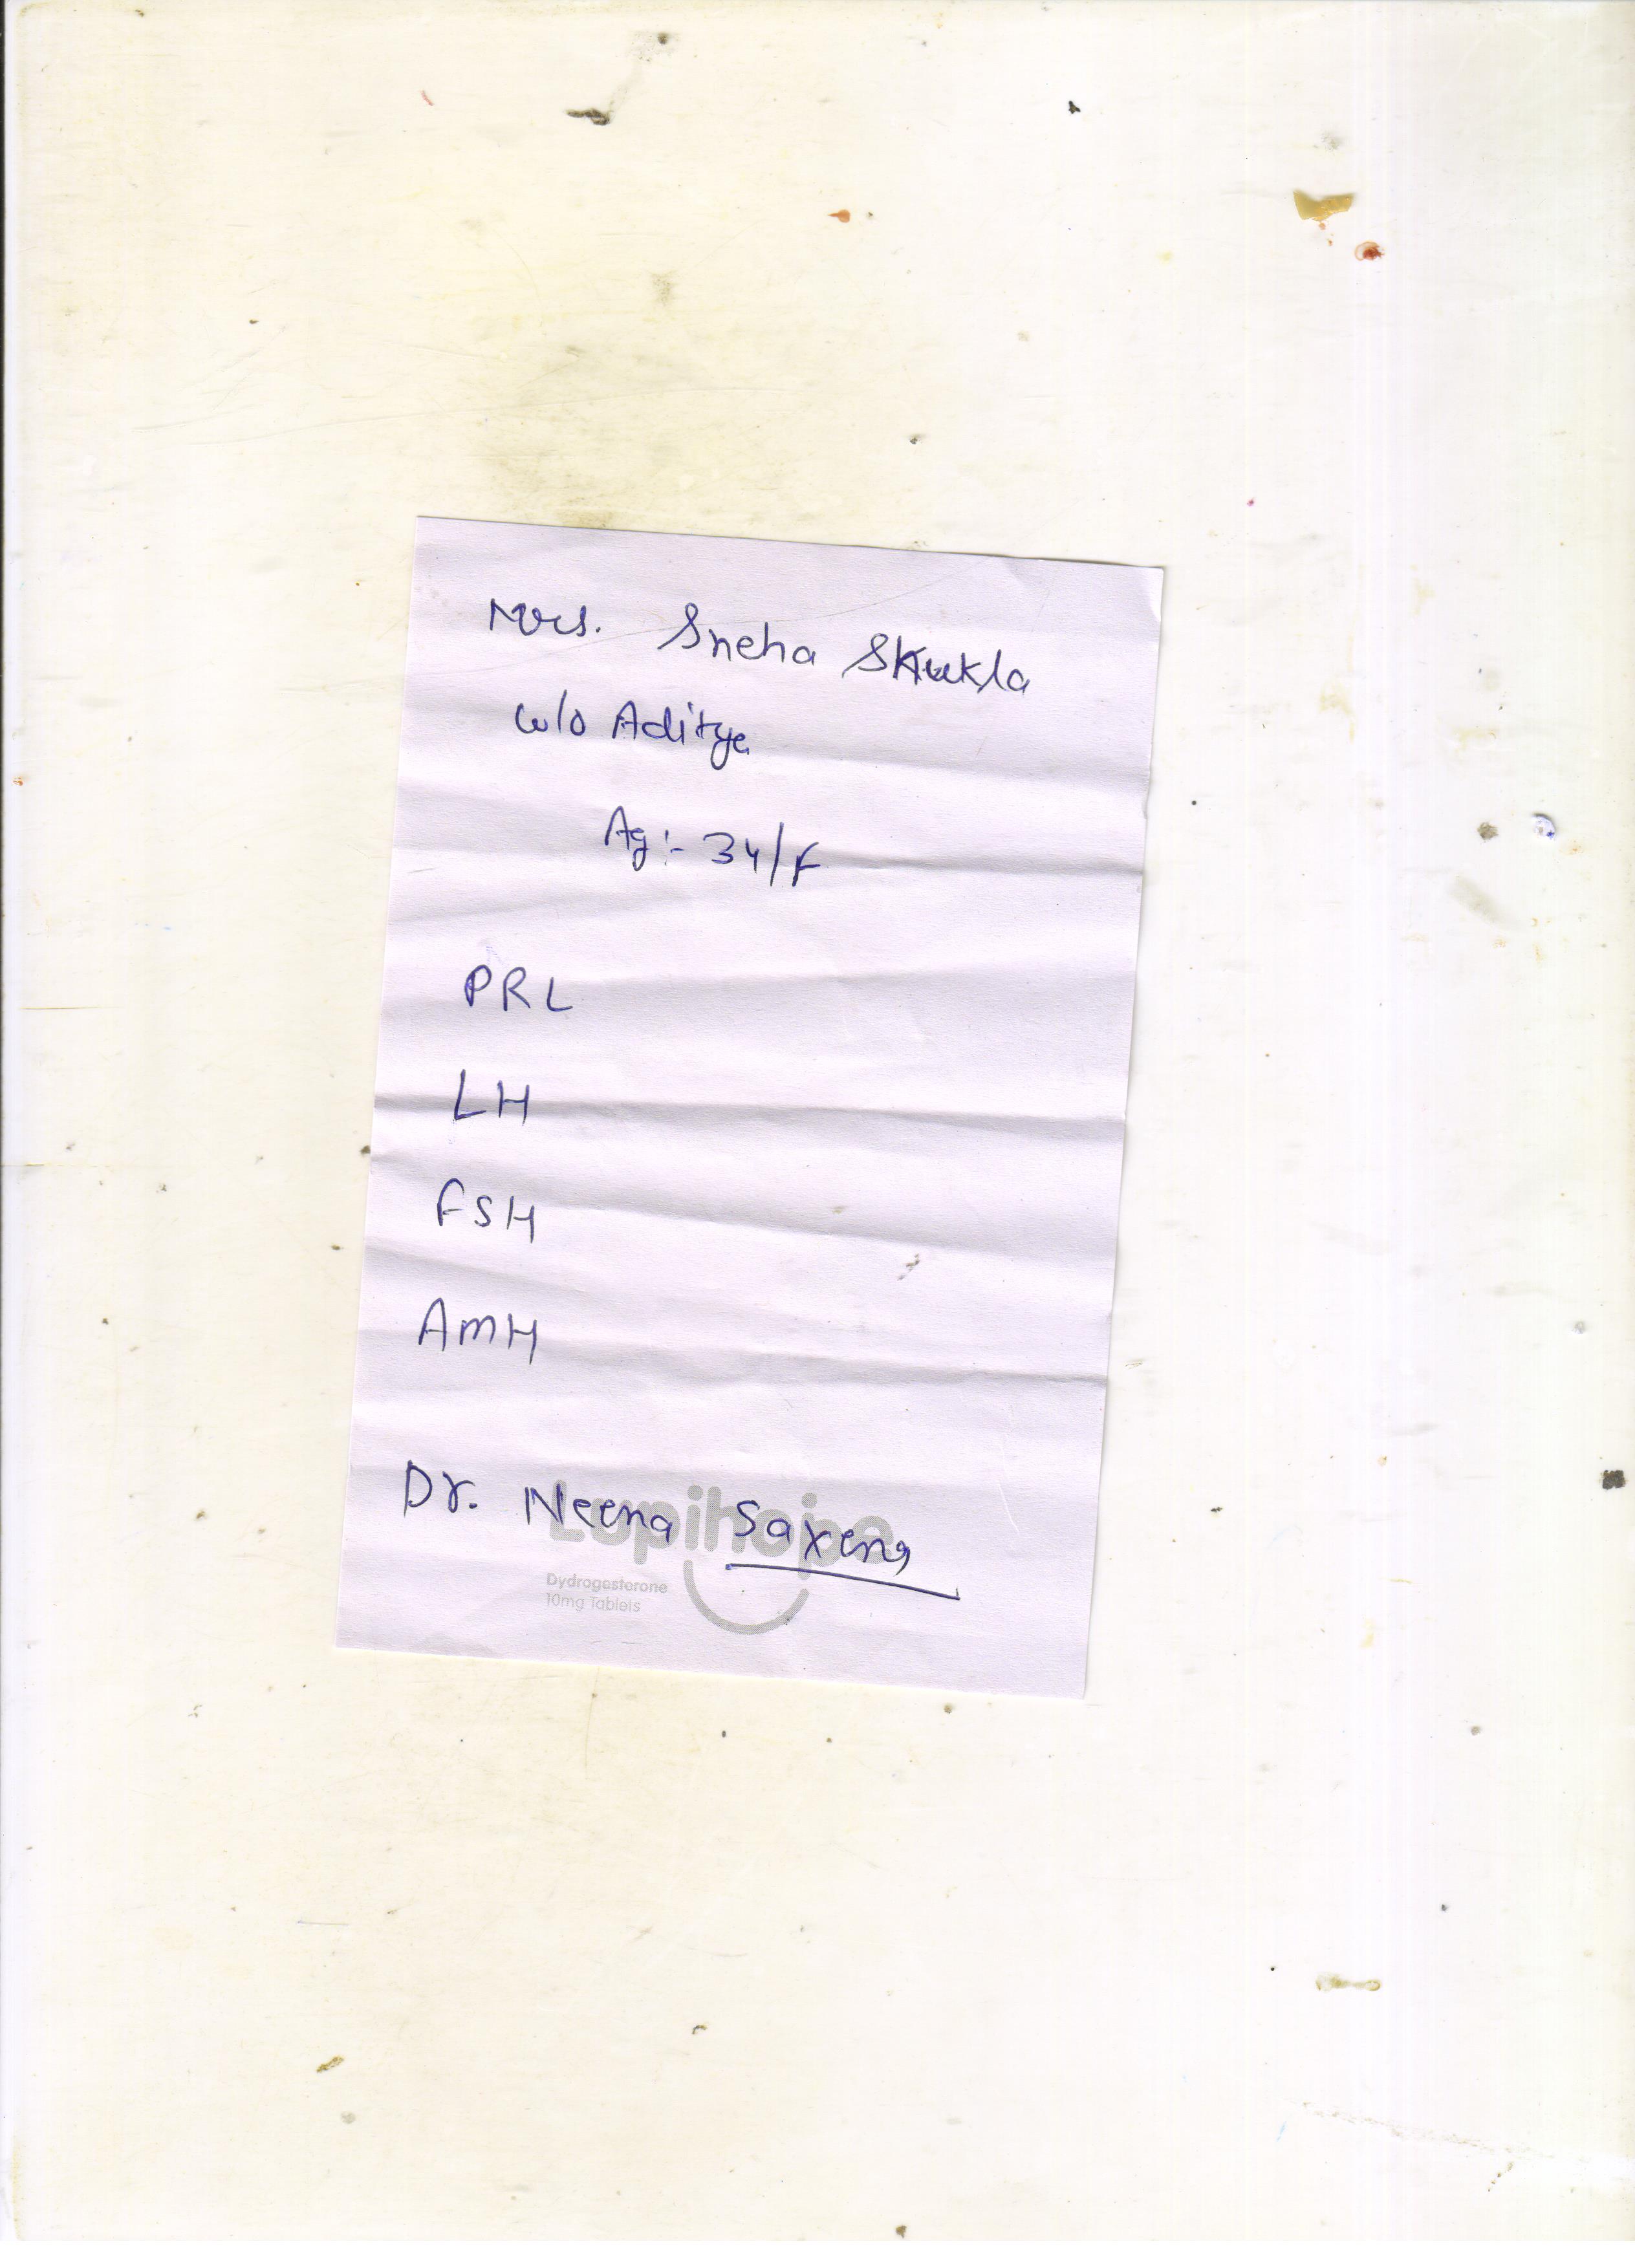 Mrs. Sneha Shukla
w/o Aditya
Ag:- 34/F
PRL
LH
FSH
AMH
Dr. Neena Saxena
Lupihope
Dydrogesterone
10mg Tablets